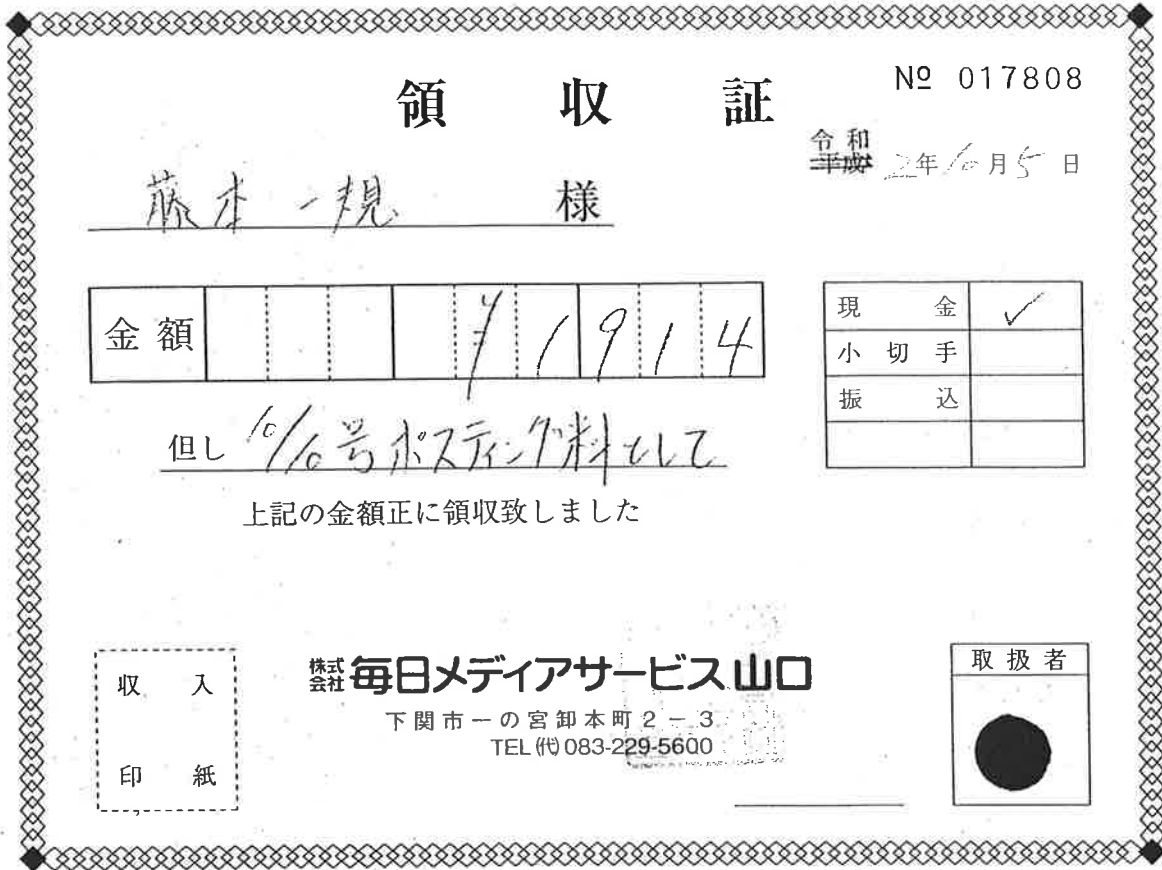 領収証
№ 017808
令和
平成 2年10月5日
藤本一規 様
金額 ¥1914
現金 ✓
小切手
振込
但し 10/10号ポスティング料として
上記の金額正に領収致しました
収入
印紙
株式会社 毎日メディアサービス山口
下関市一の宮卸本町2-3
TEL(代)083-229-5600
取扱者